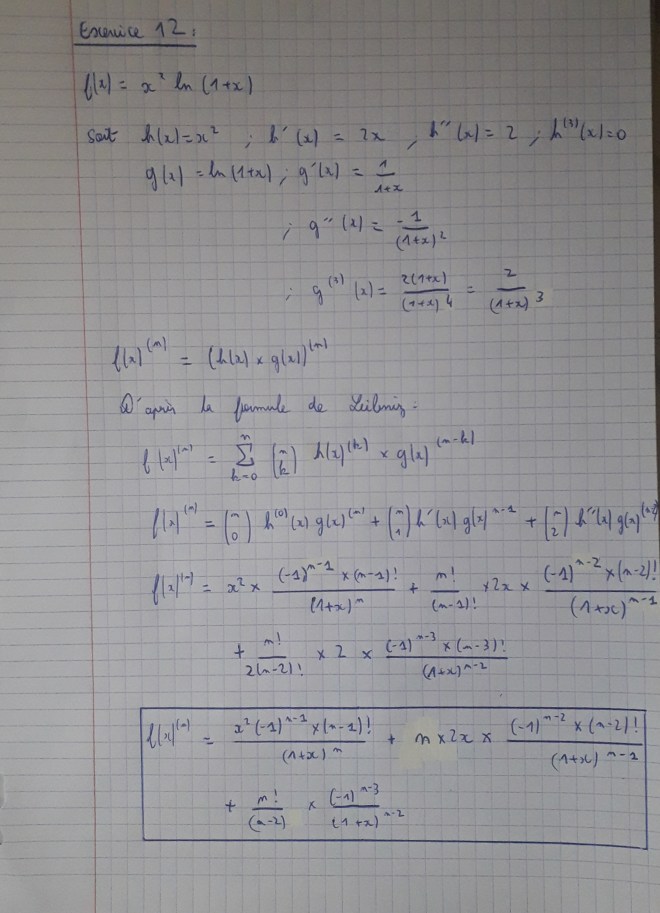 Exercice 12 :
f(x) = x² ln (1+x)
Soit h(x)=x² ; h'(x) = 2x ; h''(x) = 2 ; h⁽³⁾(x)=0
g(x) = ln(1+x) ; g'(x) = 1/(1+x)
; g''(x) = -1/(1+x)²
; g⁽³⁾(x) = 2(1+x)/(1+x)⁴ = 2/(1+x)³
f(x)⁽ⁿ⁾ = (h(x) × g(x))⁽ⁿ⁾
D'après la formule de Leibniz :
f(x)⁽ⁿ⁾ = Σ_{k=0}^{n} (n k) h(x)⁽ᵏ⁾ × g(x)⁽ⁿ⁻ᵏ⁾
f(x)⁽ⁿ⁾ = (n 0) h⁽⁰⁾(x) g(x)⁽ⁿ⁾ + (n 1) h'(x) g(x)ⁿ⁻¹ + (n 2) h''(x) g(x)⁽ⁿ⁻²⁾
f(x)⁽ⁿ⁾ = x² × (-1)ⁿ⁻¹ × (n-1)! / (1+x)ⁿ + n!/(n-1)! × 2x × (-1)ⁿ⁻² × (n-2)! / (1+x)ⁿ⁻¹
+ n!/2(n-2)! × 2 × (-1)ⁿ⁻³ × (n-3)! / (1+x)ⁿ⁻²
f(x)⁽ⁿ⁾ = x² (-1)ⁿ⁻¹ × (n-1)! / (1+x)ⁿ + n × 2x × (-1)ⁿ⁻² × (n-2)! / (1+x)ⁿ⁻¹
+ n!/(n-2) × (-1)ⁿ⁻³ / (1+x)ⁿ⁻²